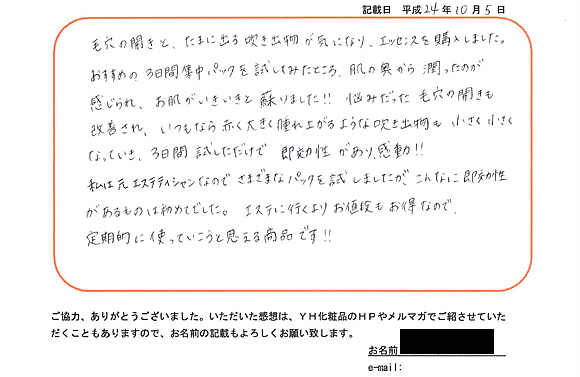 記載日　平成24年10月5日
毛穴の開きと、たまに出る吹き出物が気になり、エッセンスを購入しました。
おすすめの3日間集中パックを試してみたところ、肌の奥から潤ったのが
感じられ、お肌がいきいきと蘇りました!! 悩みだった毛穴の開きも
改善され、いつもなら赤く大きく腫れ上がるような吹き出物も小さく小さく
なっていき、3日間試しただけで即効性があり、感動!!
私は元エステティシャンなのでさまざまなパックを試しましたが、こんなに即効性
があるものは初めてでした。エステに行くよりお値段もお得なので、
定期的に使っていこうと思える商品です!!
ご協力、ありがとうございました。いただいた感想は、ＹＨ化粧品のＨＰやメルマガでご紹させていた
だくこともありますので、お名前の記載もよろしくお願い致します。
お名前
e-mail: